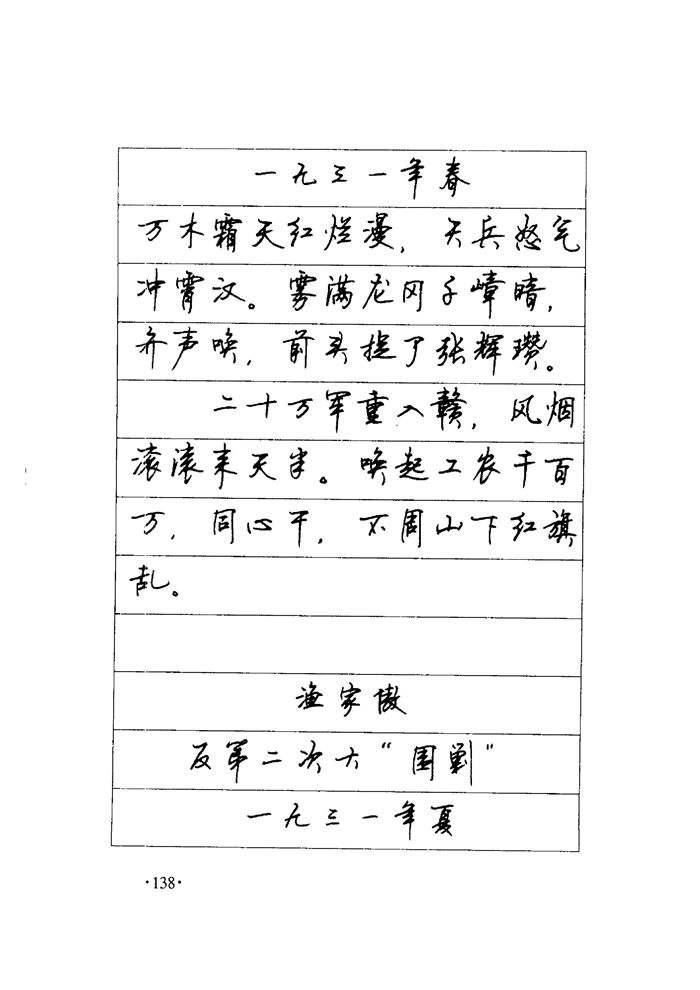 一九三一年春
万木霜天红烂漫，天兵怒气
冲霄汉。雾满龙冈千嶂暗，
齐声唤，前头捉了张辉瓒。
二十万军重入赣，风烟
滚滚来天半。唤起工农千百
万，同心干，不周山下红旗
乱。
渔家傲
反第二次大“围剿”
一九三一年夏
·138·